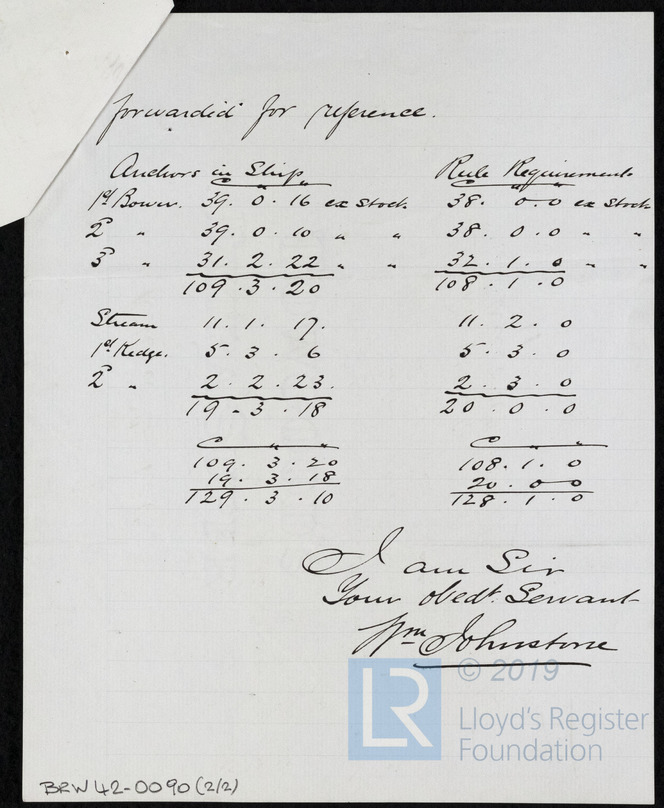 forwarded for reference.
Anchors in Ship Rule Requirements
C " " C " "
1st Bower. 39. 0. 16 ex Stock 38. 0. 0 ex Stock
2d " 39. 0. 10 " " 38. 0. 0 " "
3d " 31. 2. 22 " " 32. 1. 0 " "
109. 3. 20 108. 1. 0
Stream 11. 1. 17. 11. 2. 0
1st Kedge. 5. 3. 6 5. 3. 0
2d " 2. 2. 23. 2. 3. 0
19. 3. 18 20. 0. 0
C " " C " "
109. 3. 20 108. 1. 0
19. 3. 18 20. 0 0
129. 3. 10 128. 1. 0
I am Sir
Your obedt. Servant
Wm Johnstone
© 2019
LR
Lloyd's Register
Foundation
BRW42-0090(2/2)